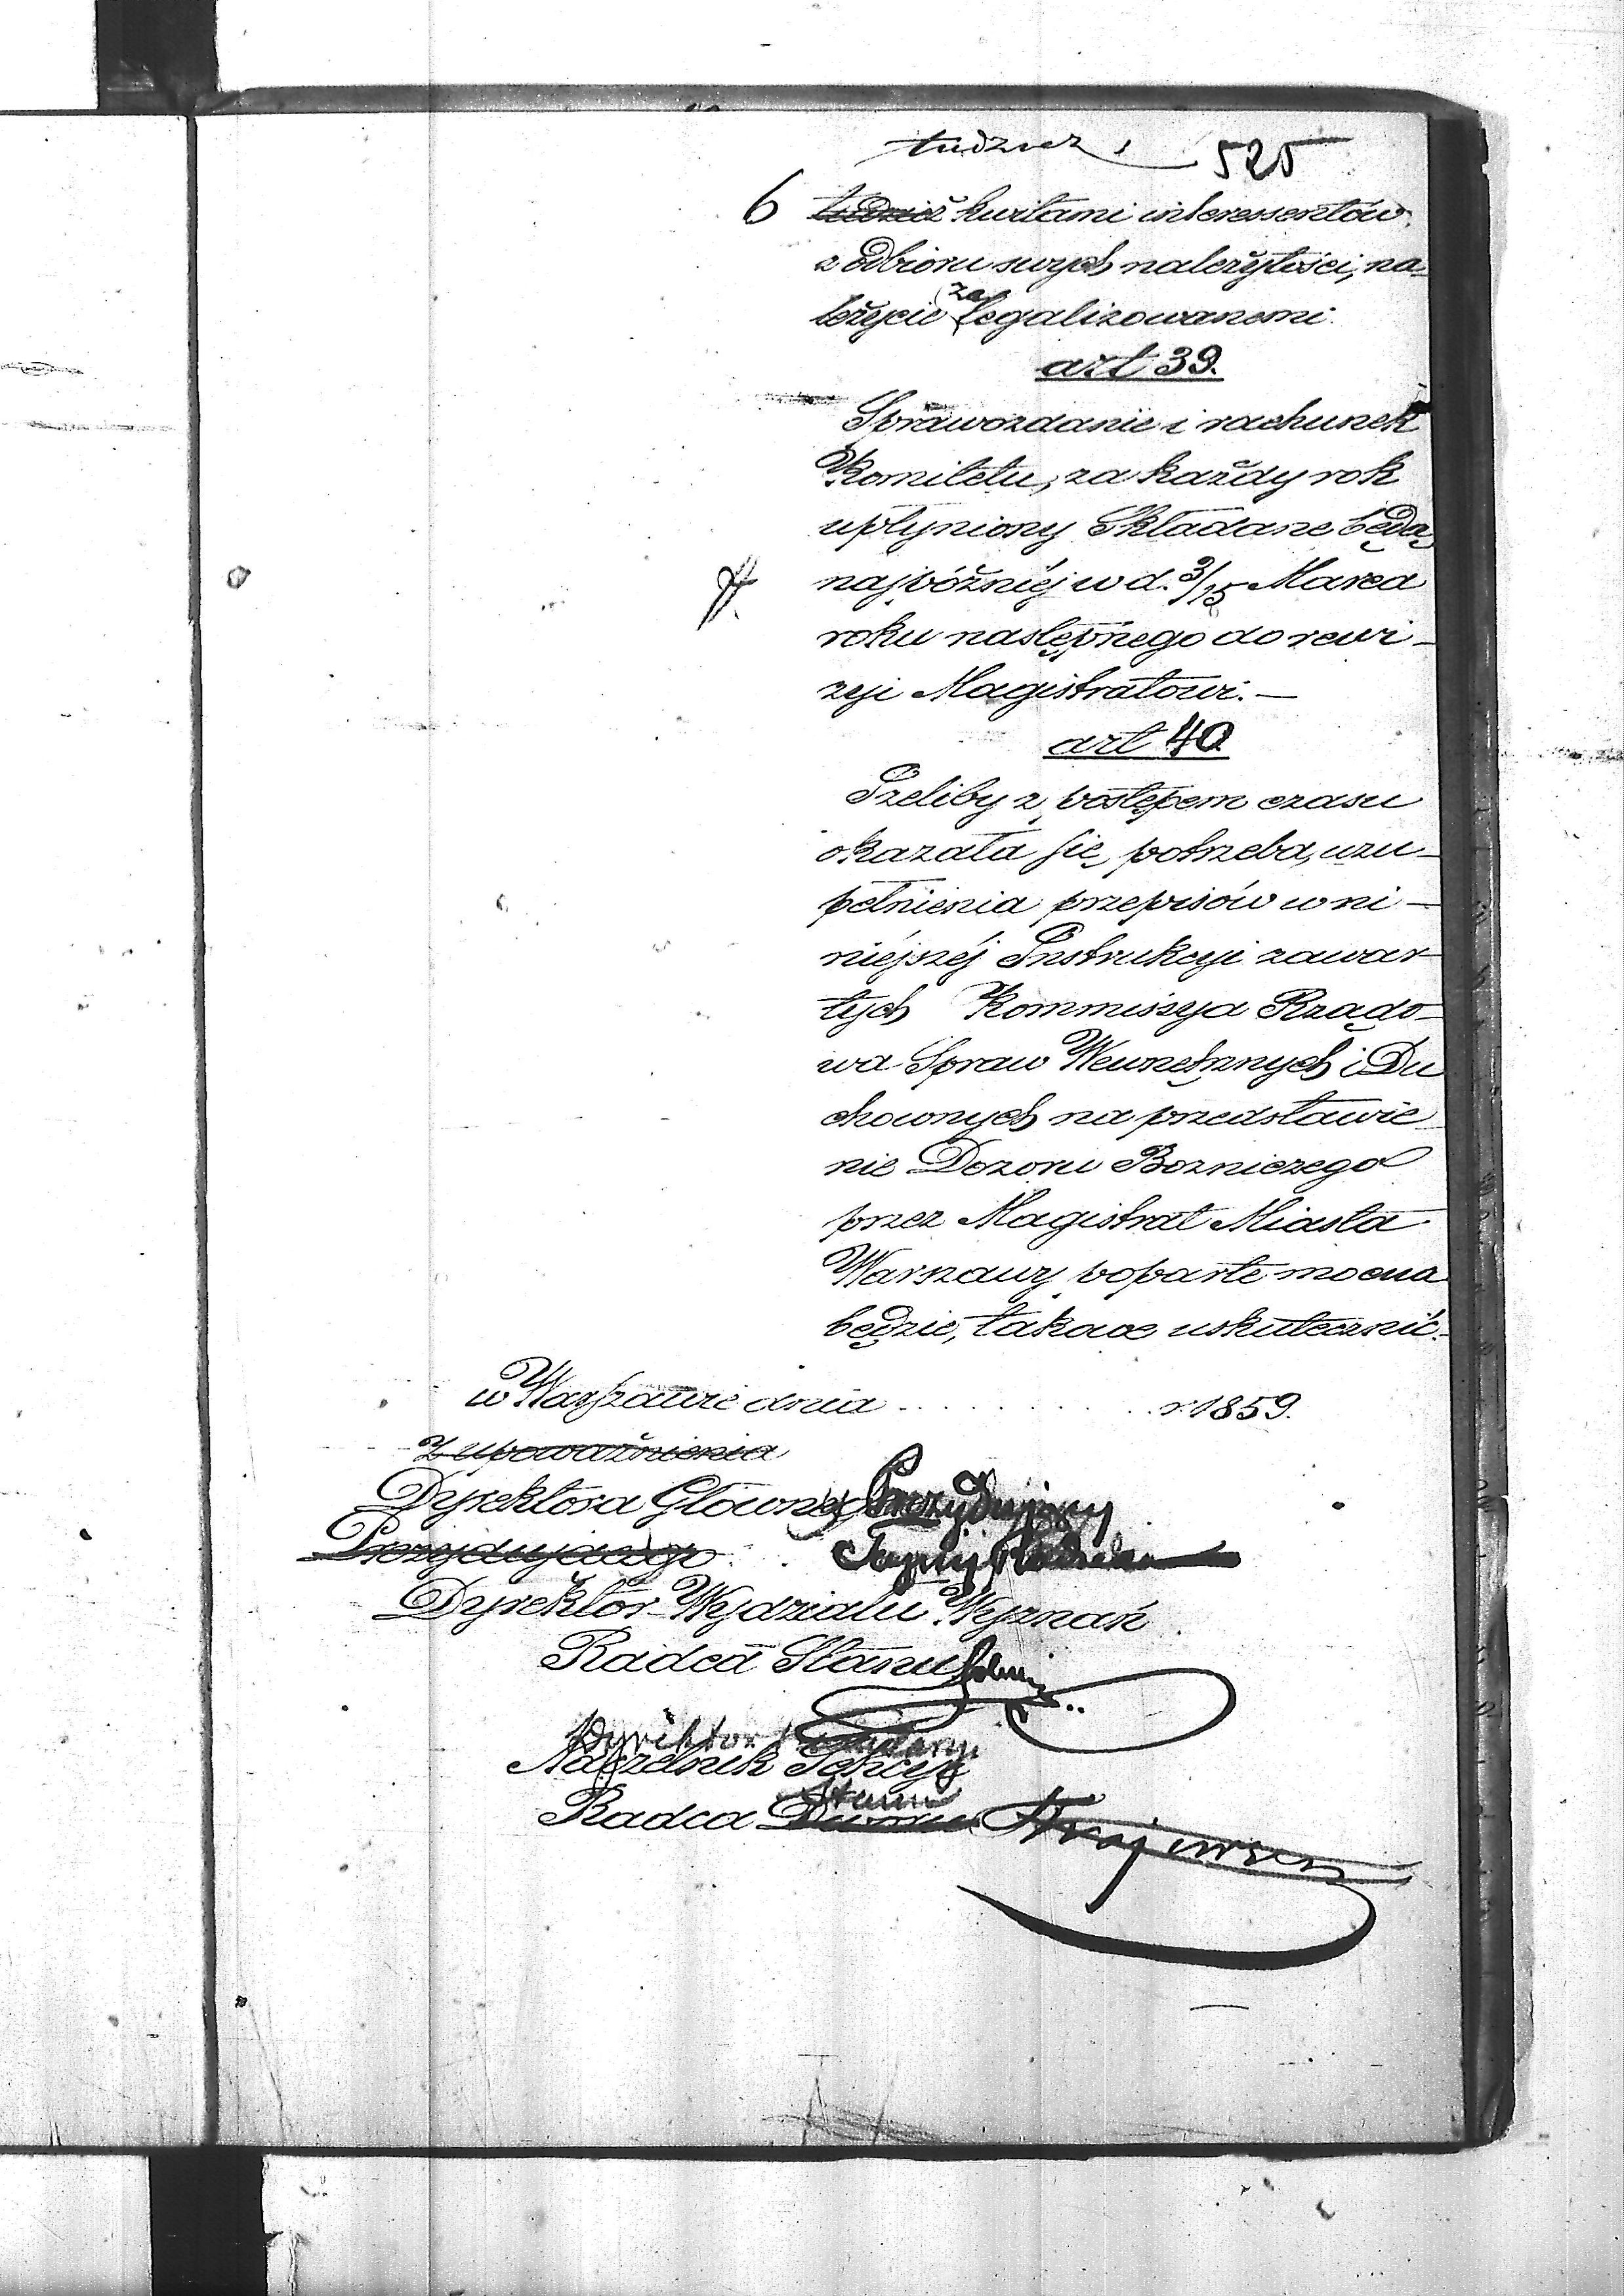 tudzież 525
6 tudzież kwitami interessentów
z odbioru swych należytości, na-
leżycie zalegalizowanemi.
art 39.
Sprawozdanie i rachunek
Komitetu, za każdy rok
upłyniony składane będą
najpóźniéj w d. 3/15 Marca
roku następnego do rewi-
zyi Magistratowi.—
art 40
Iżeliby z postępem czasu
okazała się potrzeba, uzu-
pełnienia przepisów w ni-
niéjszéj Instrukcyi zawar-
tych Kommissya Rządo-
wa Spraw Wewnętrznych i Du
chownych na przedstawie
nie Dozoru Bożniczego
przez Magistrat Miasta
Warszawy poparte mocna
będzie, takowe uskutecznić.
w Warszawie dnia . . . . . . . . . . r. 1859.
Z upoważnienia
Dyrektora Główny Prezydujący
Prezydującego Tajny Radca
Dyrektor Wydziału Wyznań
Radca Stanu
Dyrektor Kancelaryi
Naczelnik Sekcyi
Stanu
Radca Dworu